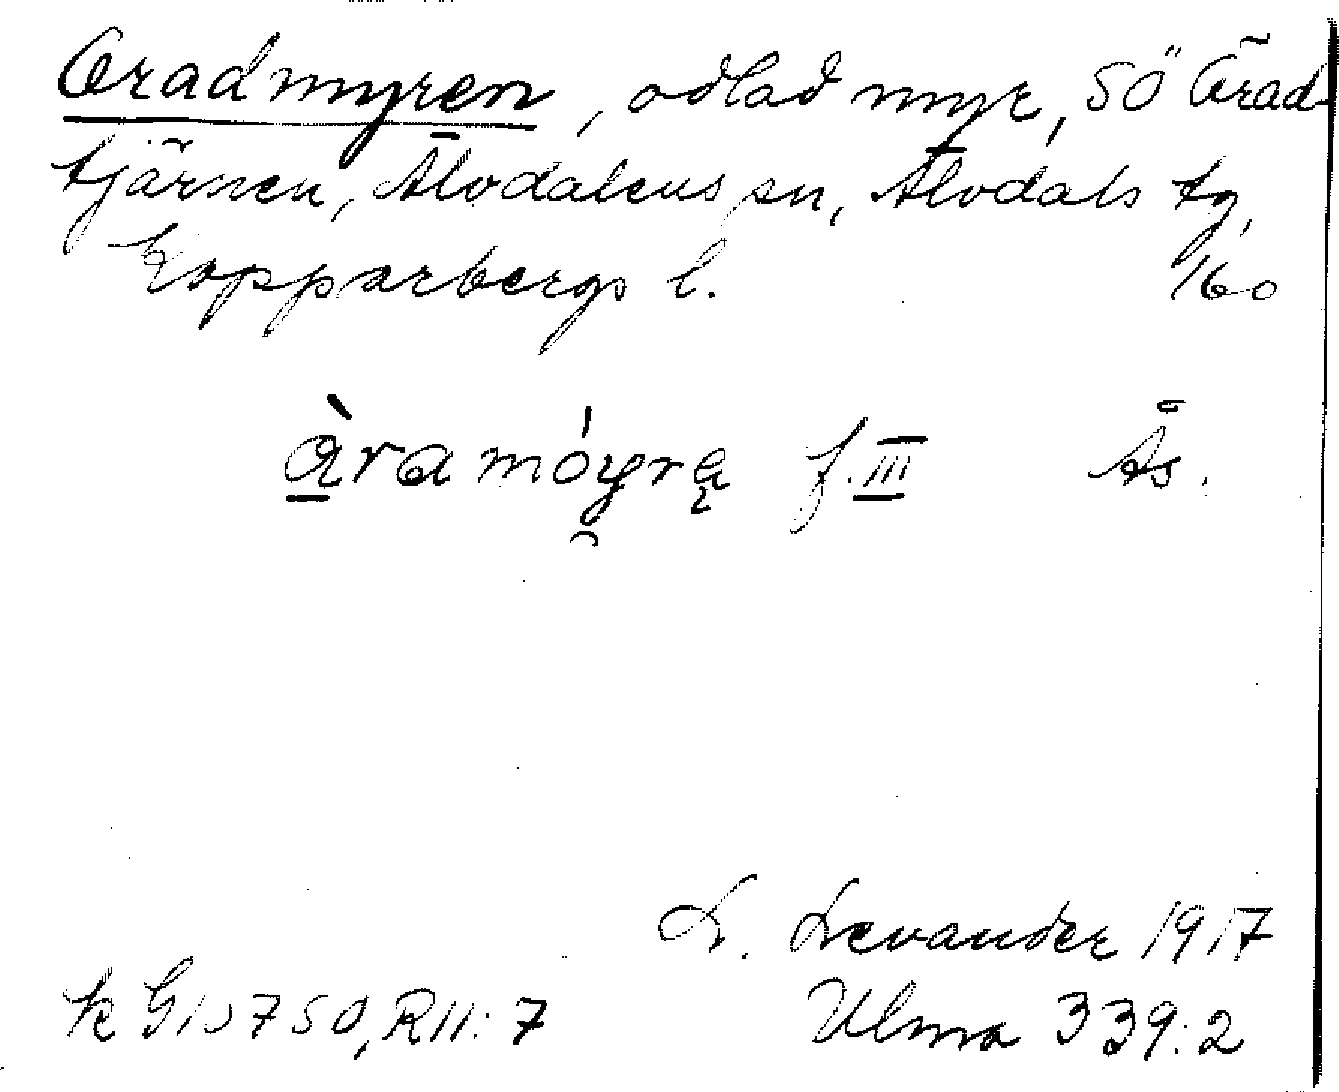 Äradmyren, odlad myr, SÖ Ärad-
tjärnen, Älvdalens sn, Älvdals tg,
Kopparbergs l. 160
àramóyrą f.III Ås.
L. Levander 1917
k G15750, R11:7 Ulma 339:2